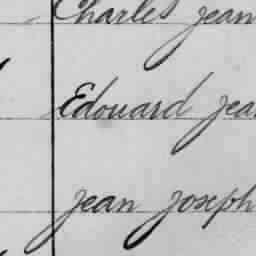 Charles jean
Edouard jea
jean joseph